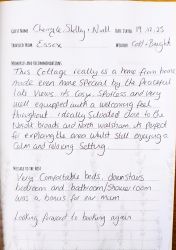 GUEST NAME Cheryl & Shelley + Niall DATE STAYED 19.12.25
TRAVELLED FROM Essex REASON
MEMORIES AND RECOMMENDATIONS
This Cottage really is a home from home
made even more special by the Peaceful
lake views. Its cosy, Spotless and very
well equipped with a welcoming feel
throughout. Ideally Situated close to the
Norfolk broads and North Walsham. its perfect
for exploring the area whilst still enjoying a
Calm and relaxing Setting.
MESSAGE TO THE HOST
Very Comfortable beds, downstairs
bedroom and bathroom/Shower room
was a bonus for our Mum
Looking forward to booking again